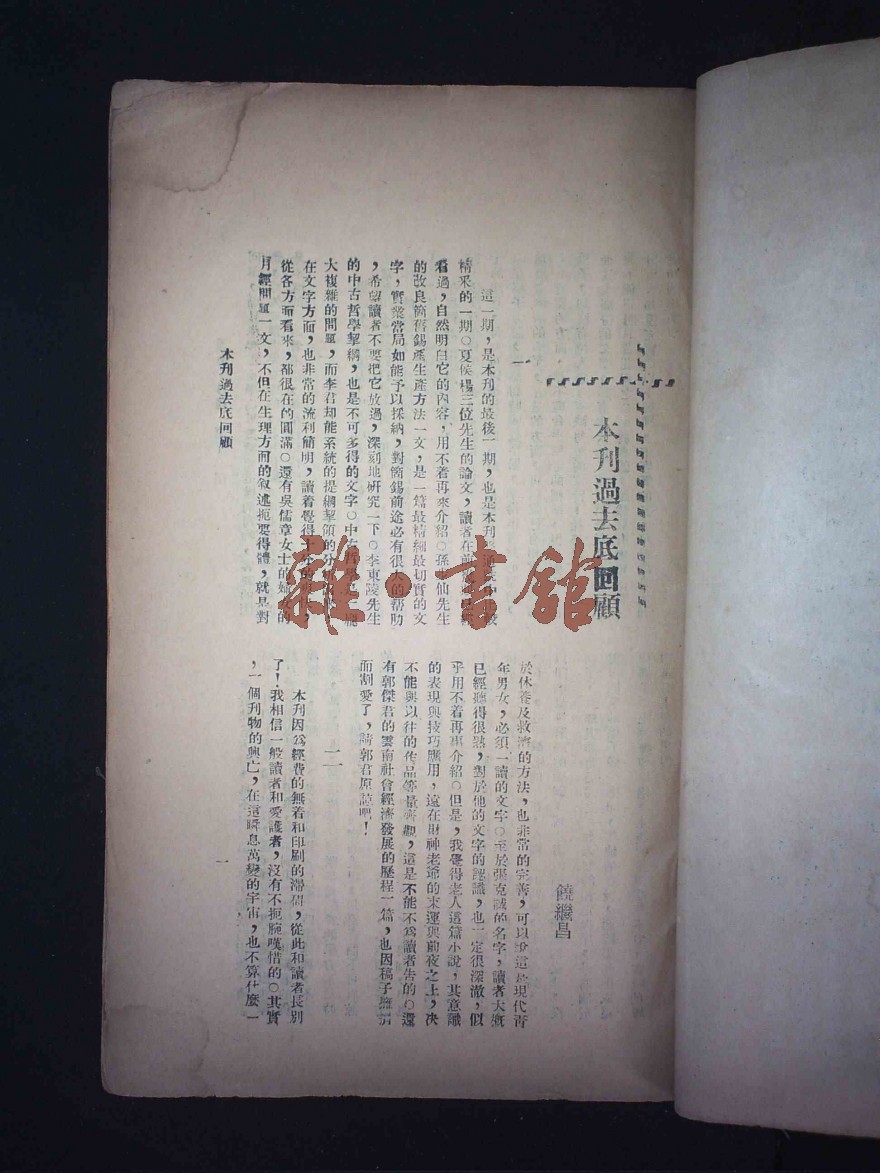 本刊過去底回顧
饒繼昌
一
這一期，是本刊的最後一期，也是本刊
精釆的一期。夏侯楊三位先生的論文，讀者在前
看過，自然明白它的內容，用不着再來介紹。孫 仙先生
的改良箇舊錫產生產方法一文，是一篇最精細最切實的文
字，實業當局如能予以採納，對箇錫前途必有很大的幫助
，希望讀者不要把它放過，深刻地研究一下。李東陵先生
的中古哲學挈綱，也是不可多得的文字。中
大複雜的問題，而李君却能系統的提綱挈領的分
在文字方面，也非常的流利簡明，讀着覺得
從各方面看來，都很在的圓滿。還有吳儒章女士的 的
月經問題一文，不但在生理方面的叙述扼要得體，就是對
於休養及救濟的方法，也非常的完善，可以說這是現代青
年男女，必須一讀的文字。至於張克誠的名字，讀者大概
已經聽得很熟，對於他的文字的認識，也一定很深澈，似
乎用不着再事介紹。但是，我覺得老人這篇小說，其意識
的表現與技巧應用，遠在財神老爺的末運與前夜之上，决
不能與以往的作品等量齊觀，這是不能不爲讀者告的。還
有郭傑君的雲南社會經濟發展的歷程一篇，也因稿子擁擠
而割愛了，請郭君原諒吧！
二
本刊因爲經費的無着和印刷的滯 ，從此和讀者長別
了！我相信一般讀者和愛護者，沒有不扼腕嘆惜的。其實
，一個刊物的興亡，在這瞬息萬變的宇宙，也不算什麼一
本刊過去底回顧
一
雜·書館